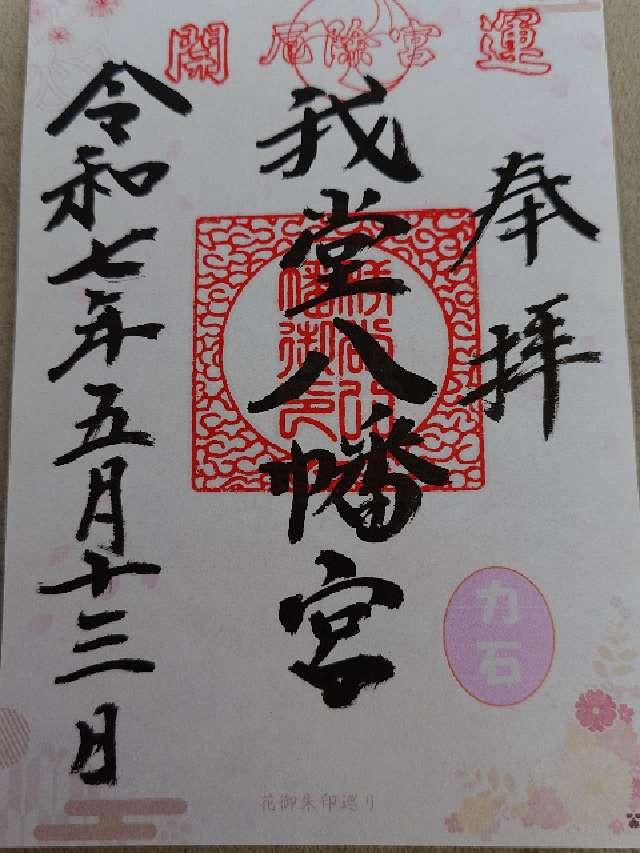 開運
厄除宮
奉拝
我堂八幡宮
令和七年五月十三日
力石
花御朱印巡り